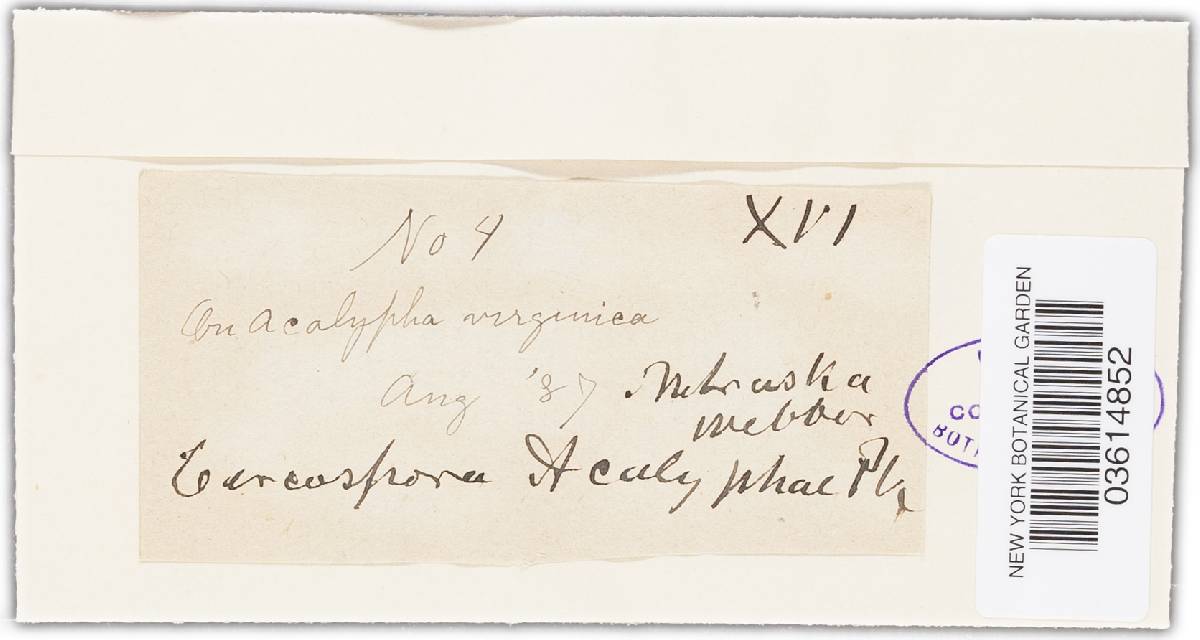 No 4
XVI
On Acalypha virginica
Aug '87 Nebraska
Webber
Cercospora Acalyphae Pk
CO
BOT
NEW YORK BOTANICAL GARDEN
03614852